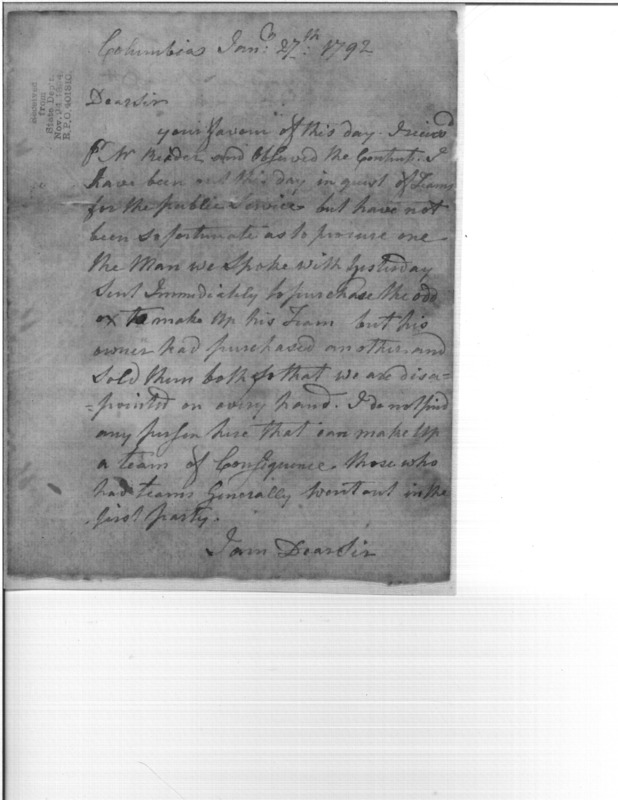 Columbia Jany. 27th. 1792
Received
from
State Dep't.
Nov. 24 1894
R.P.O. 401810.
Dear Sir
your favour of this day I reciev'd
P Mr and observed the Contents. I
have been out this day in quest of Teams
for the public Service but have not
been so fortunate as to procure one
the Man we Spoke with Yesterday
Sent Immediately to purchase the odd
ox to make up his Team but his
owner had purchased another and
Sold them both so that we are disa=
=pointed on every hand. I do not find
any person here that can make Up
a team of Consequence. those who
had teams Generally Went out in the
first party.
I am Dear Sir